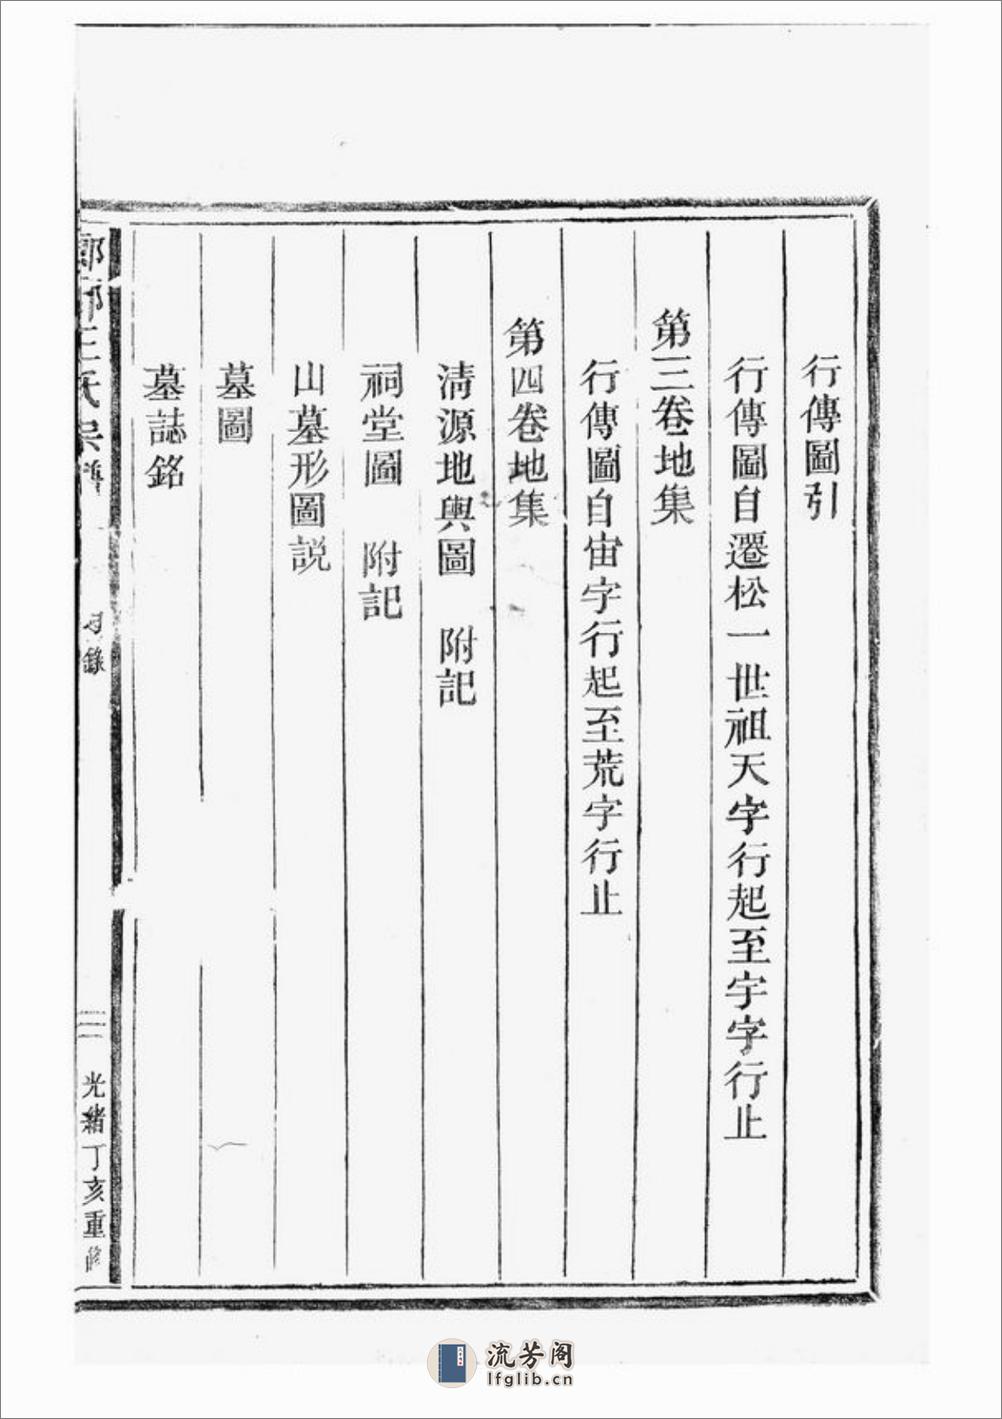 行傳圖引
行傳圖自遷松一世祖天字行起至宇字行止
第三卷地集
行傳圖自宙字行起至荒字行止
第四卷地集
清源地輿圖 附記
祠堂圖 附記
山墓形圖説
墓圖
墓誌銘
王氏宗譜 目錄 三 光緒丁亥重修
流芳阁
lfglib.cn